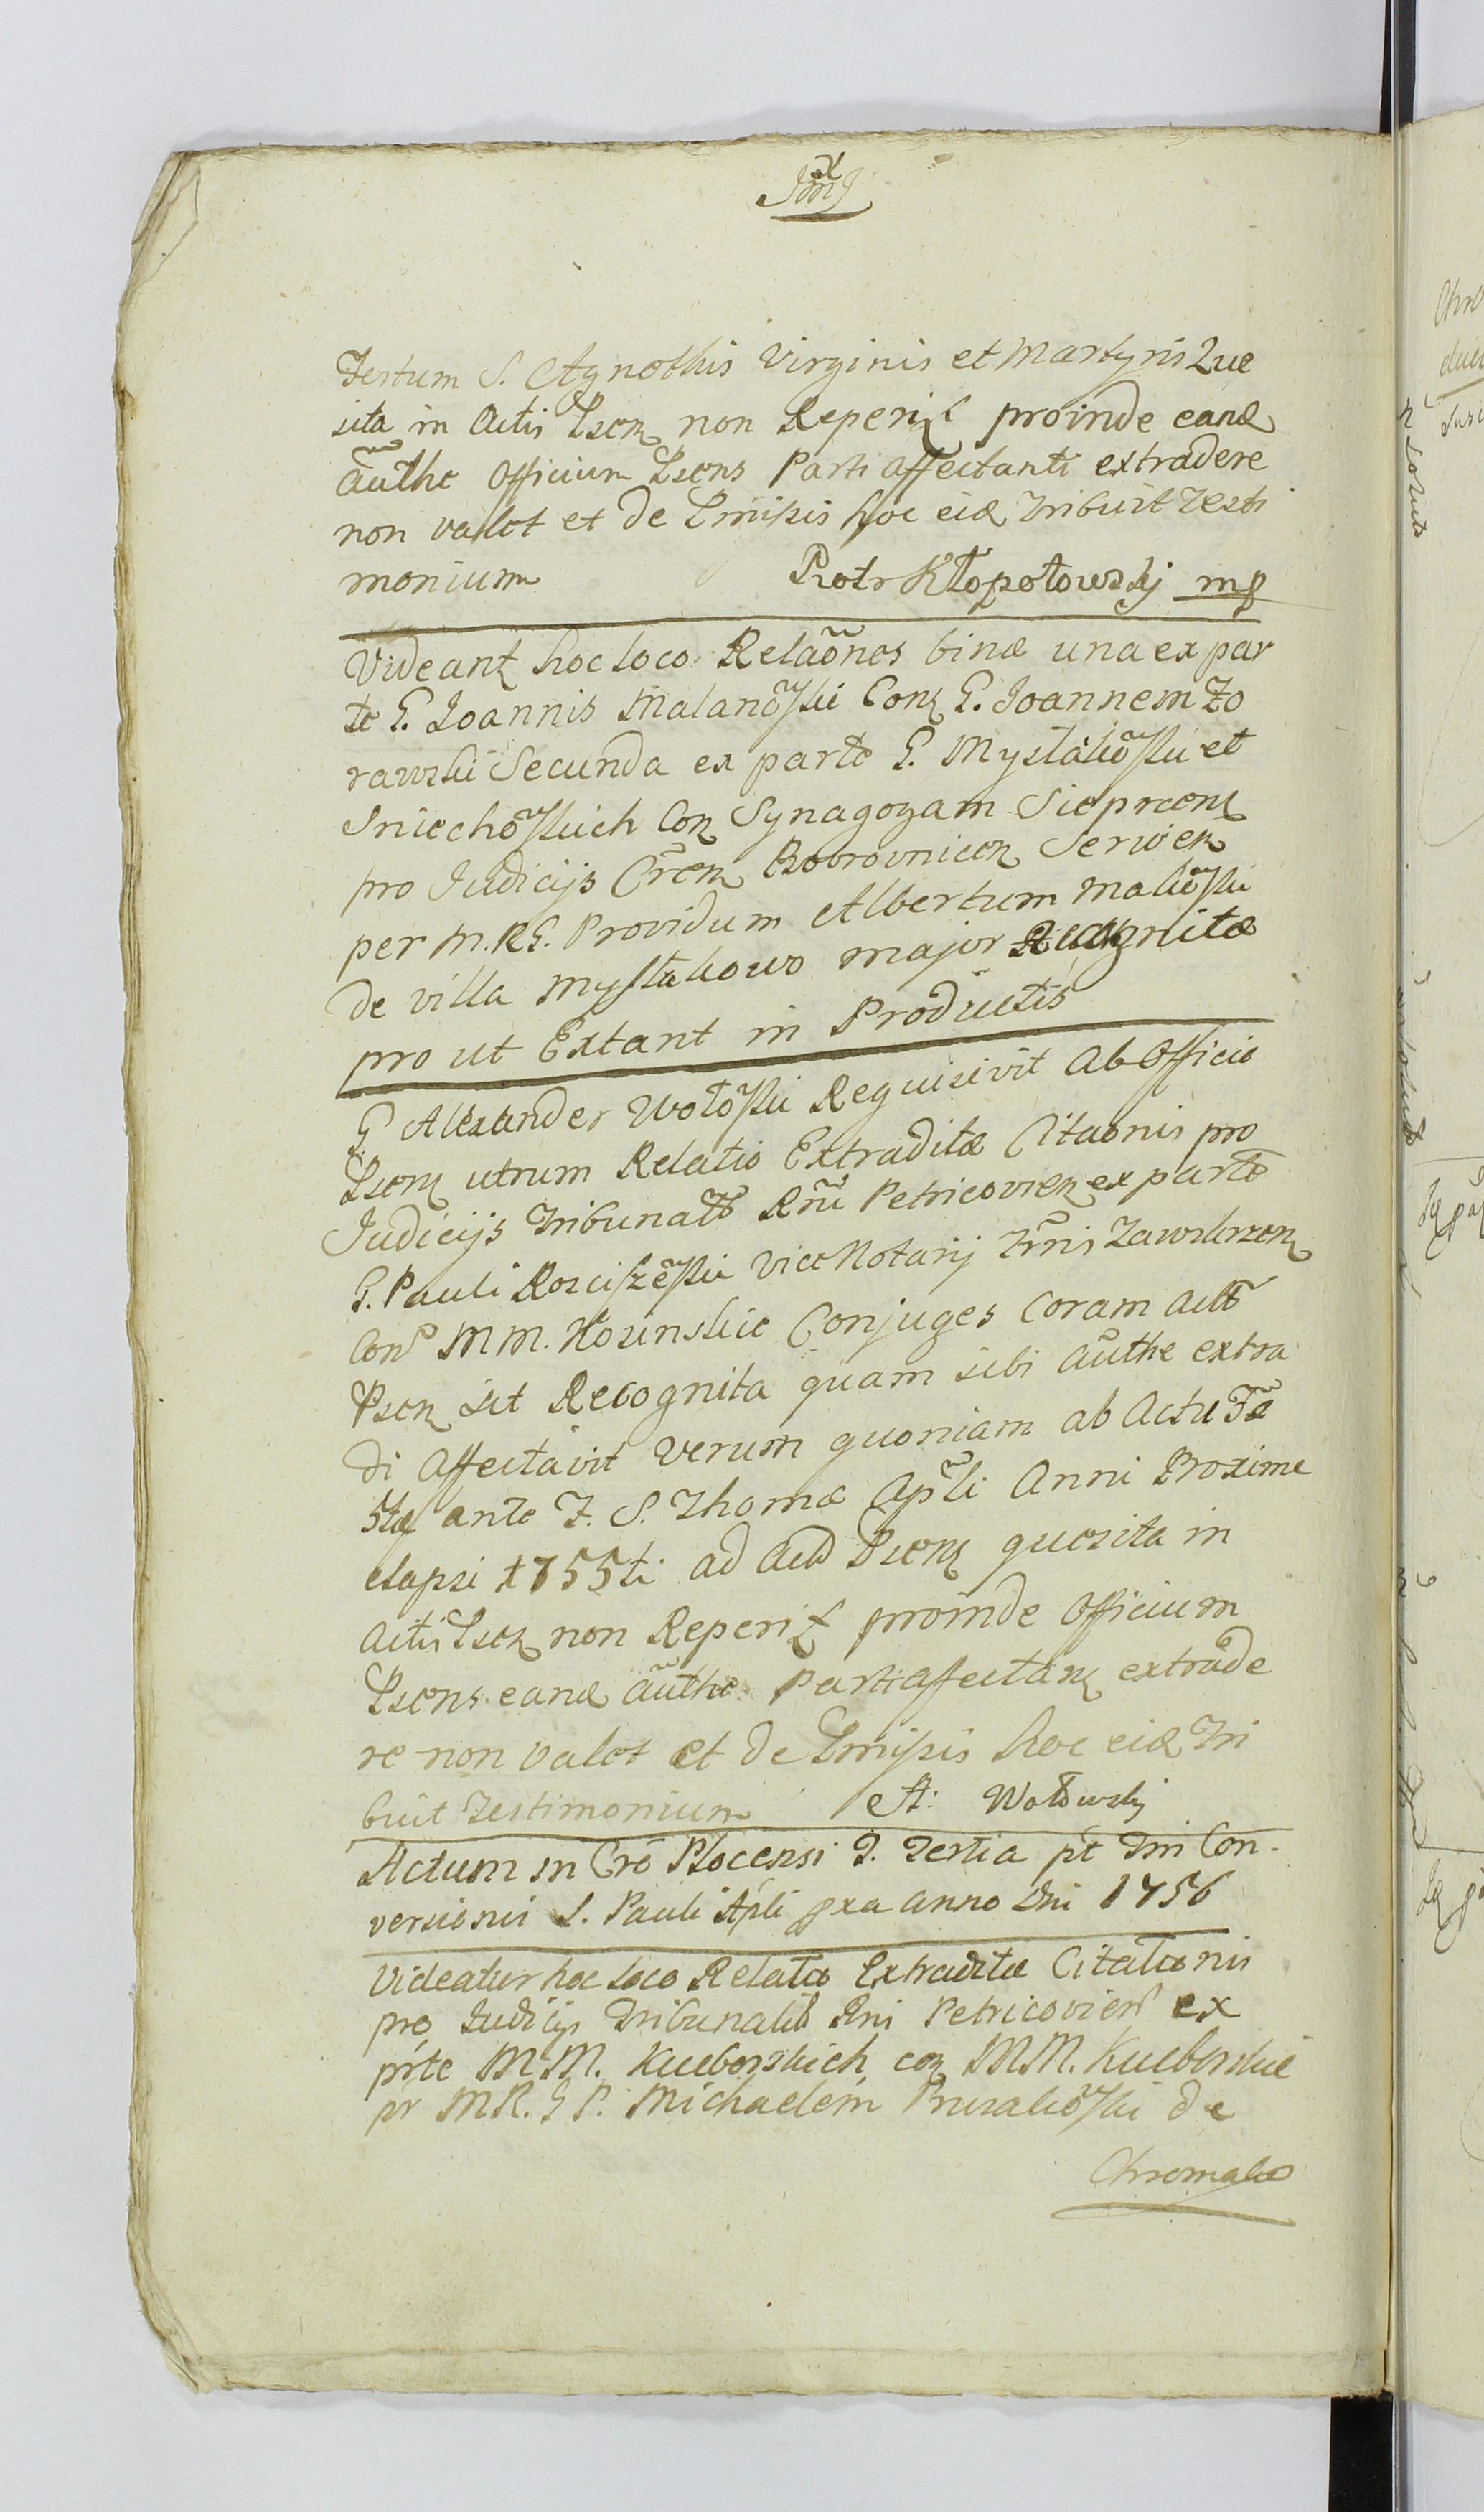 Festum S. Agnethis Virginis et Martyris Que
sita in Actis Psen non Reperit proinde eand
authe Officium Psens Parti affectanti extradere
non valet et de Pmissis hoc eid Tribuit Testi
monium Piotr Kłopotowskj mp
Videant hoc loco Relaones binæ una ex par
te G. Joannis Malanoski Con G. Joannem Zo
rawski Secunda ex parte G. Mystkoski et
Sniechoskich Con Synagogam Sieprcen
pro Judicijs Cren Bobrovnicen Servien
per M.R.G. Providum Albertum Makoski
de villa Mystkowo major Recognitæ
pro ut Extant in Productis
G Alexander Wołoski Requisivit ab Officio
Psen utrum Relatio Extraditæ Citaonis pro
Judicijs Tribunalb Rni Petricovien ex parte
G. Pauli Rosciszeski Vice Notarij Trris Zawskrzen
Con MM. Kosinskie Conjuges Coram actb
Psen sit Recognita quam sibi authe extra
di affectavit Verum quoniam ab Actu Fæ
5tæ ante F. S. Thomæ Apli Anni Proxime
elapsi 1755ti ad Acta Psens quesita in
actis Psen non Reperit proinde Officium
Psens eand authe Parti affectan extrade
re non valet et de Pmissis hoc eid Tri
buit Testimonium A: Wołowskj
Actum in Cro Plocensi F. Tertia pt Fm Con-
versionis S. Pauli Apli pxa anno Dni 1756
Videatur hoc loco Relatio Extraditæ Citationis
pro Judicijs Tribunalib Rni Petricovien ex
prte M.M. Kucborskich con MM. Kucborskie
pr MR. G P. Michaelem Prusakoski de
Chromako